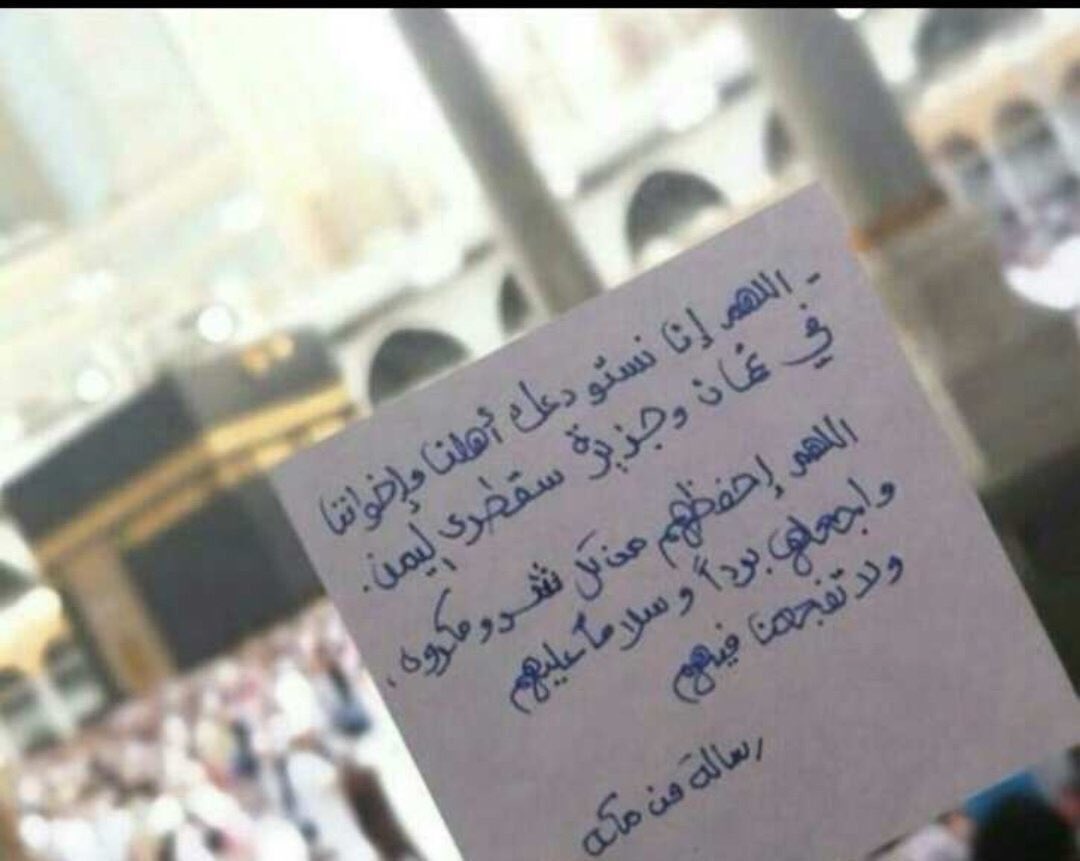 - اللهم إنا نستودعك أهلنا وإخواننا
في عُمان وجزيرة سقطرى اليمن.
اللهم إحفظهم من كل شر ومكروه،
واجعلها برداً وسلاماً عليهم
ولا تفجعنا فيهم
رسالة من مكه